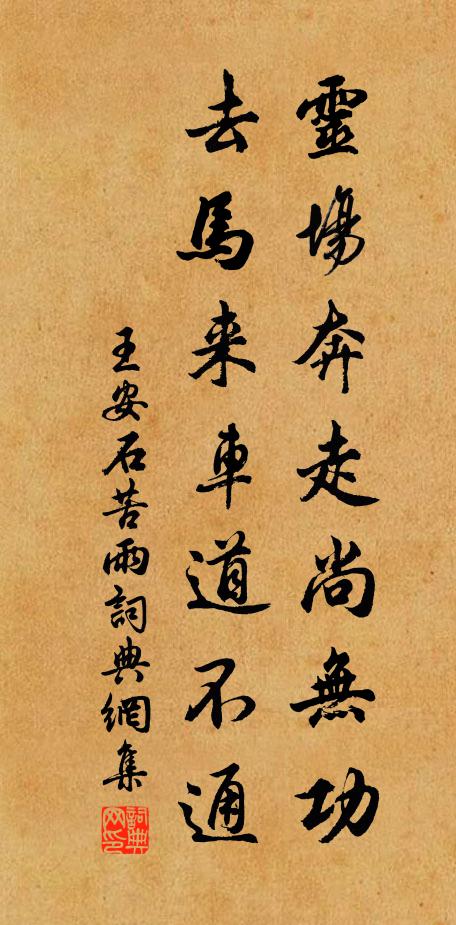 靈場奔走尚無功
去馬来車道不通
王安石苦雨詞典網集
詞典網印